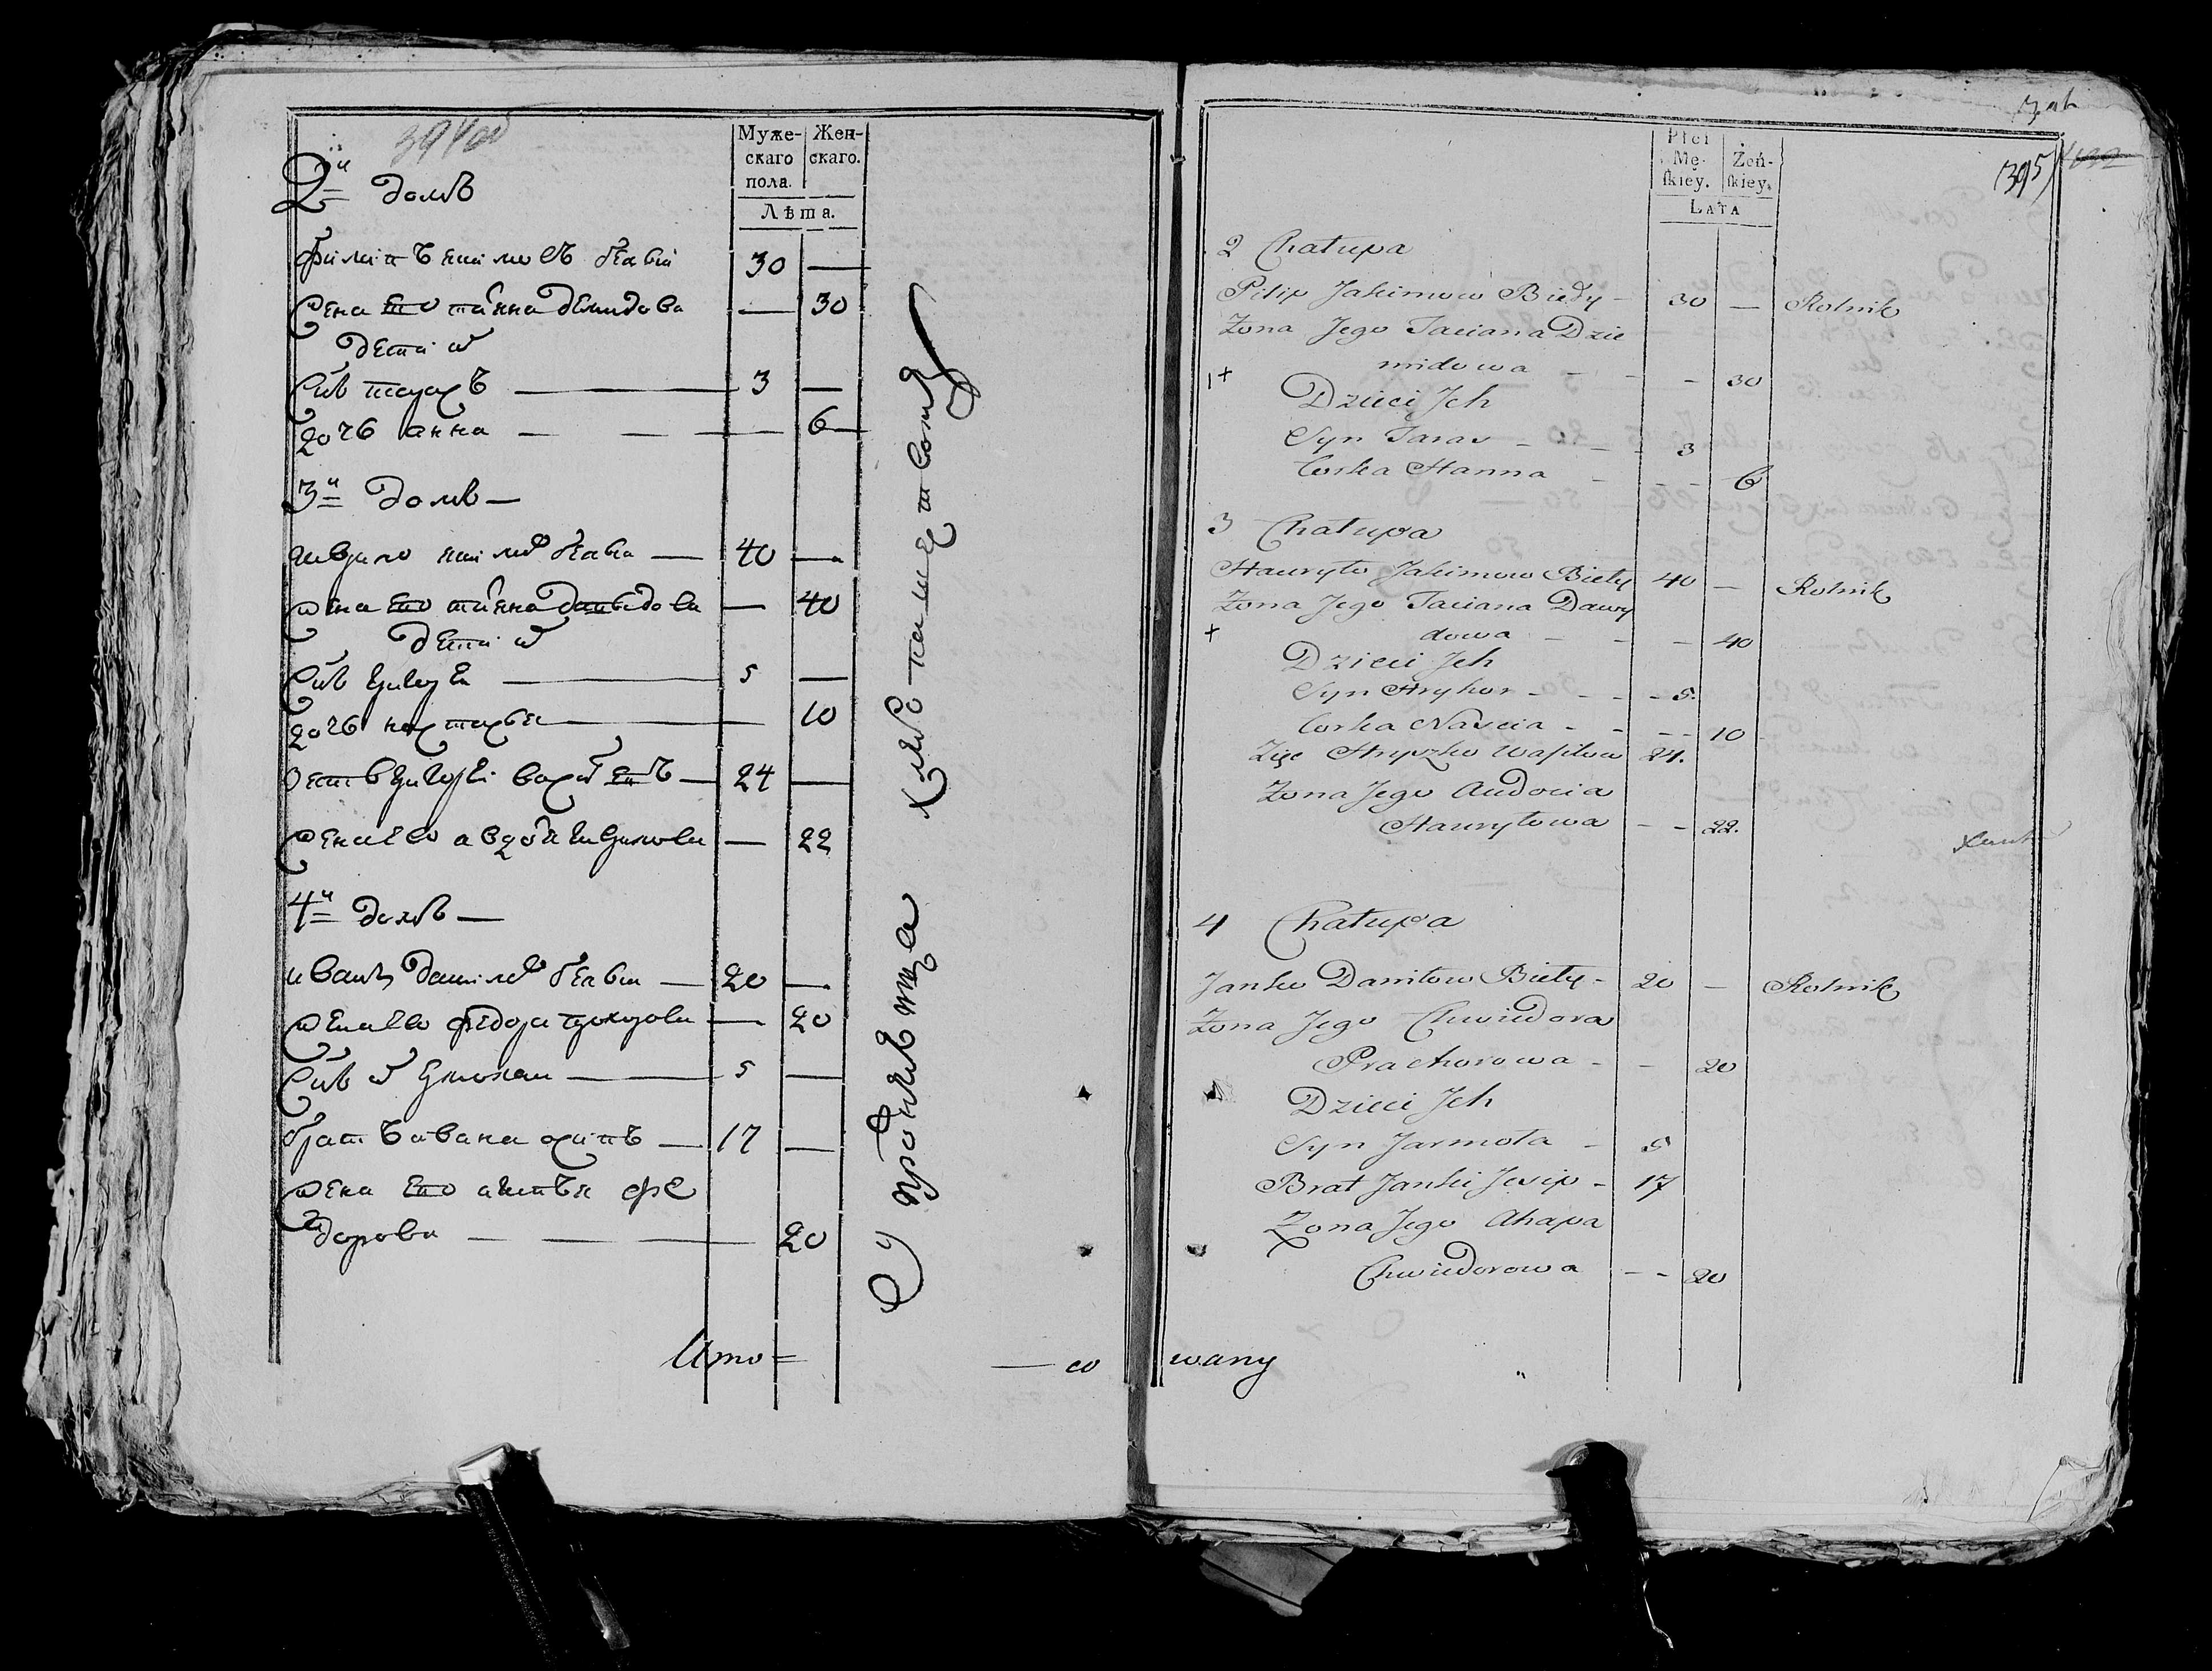 394 об
Муже-
скаго
пола.
Жен-
скаго.
Лѣта.
2й домъ
Филипъ Екимовъ белый 30 —
Жена его татьяна демидова — 30
дети их
Сынъ тарасъ — 3 —
дочь анна — — — 6
3й домъ —
гаврило екимов белы — 40 —
жена его татьяна давыдова — 40
дети их
Сынъ григорей — 5 —
дочь настасья — 10
зять григорей васильевъ — 24 —
жена ево авдотья гаврилова — 22
4й домъ —
иванъ данилов белы — 20 —
жена ево федора прохорова — 20
Сынъ их ермолай — 5 —
братъ ивана осипъ — 17 —
жена его агапья фе
дорова — — — 20
Итого =
— со
Płci
Mę-
ſkiey.
Żeń-
ſkiey.
LATA
395
2 Chałupa
Pilip Jakimow Biały - 30 — Rolnik
Zona Jego Taciana Dzie
midowa - - - 30
Dzieci Jch
Syn Taras - - - 3
Corka Hanna - - - 6
3 Chałupa
Hawryło Jakimow Biały 40 — Rolnik
Zona Jego Taciana Dawy
dowa - - - 40
Dzieci Jch
Syn Hryhor - - - 5.
Corka Naścia - - - 10
Zięć Hryszko Waſilow 24.
Zona Jego Audocia
Hawryłowa - - 22.
4 Chałupa
Janko Daniłow Biały - 20 — Rolnik
Zona Jego Chwiedora
Prachorowa - - 20
Dzieci Jch
Syn Jarmoła - 5
Brat Janki Josip - 17
Zona Jego Ahapa
Chwiedorowa - - 20
wany